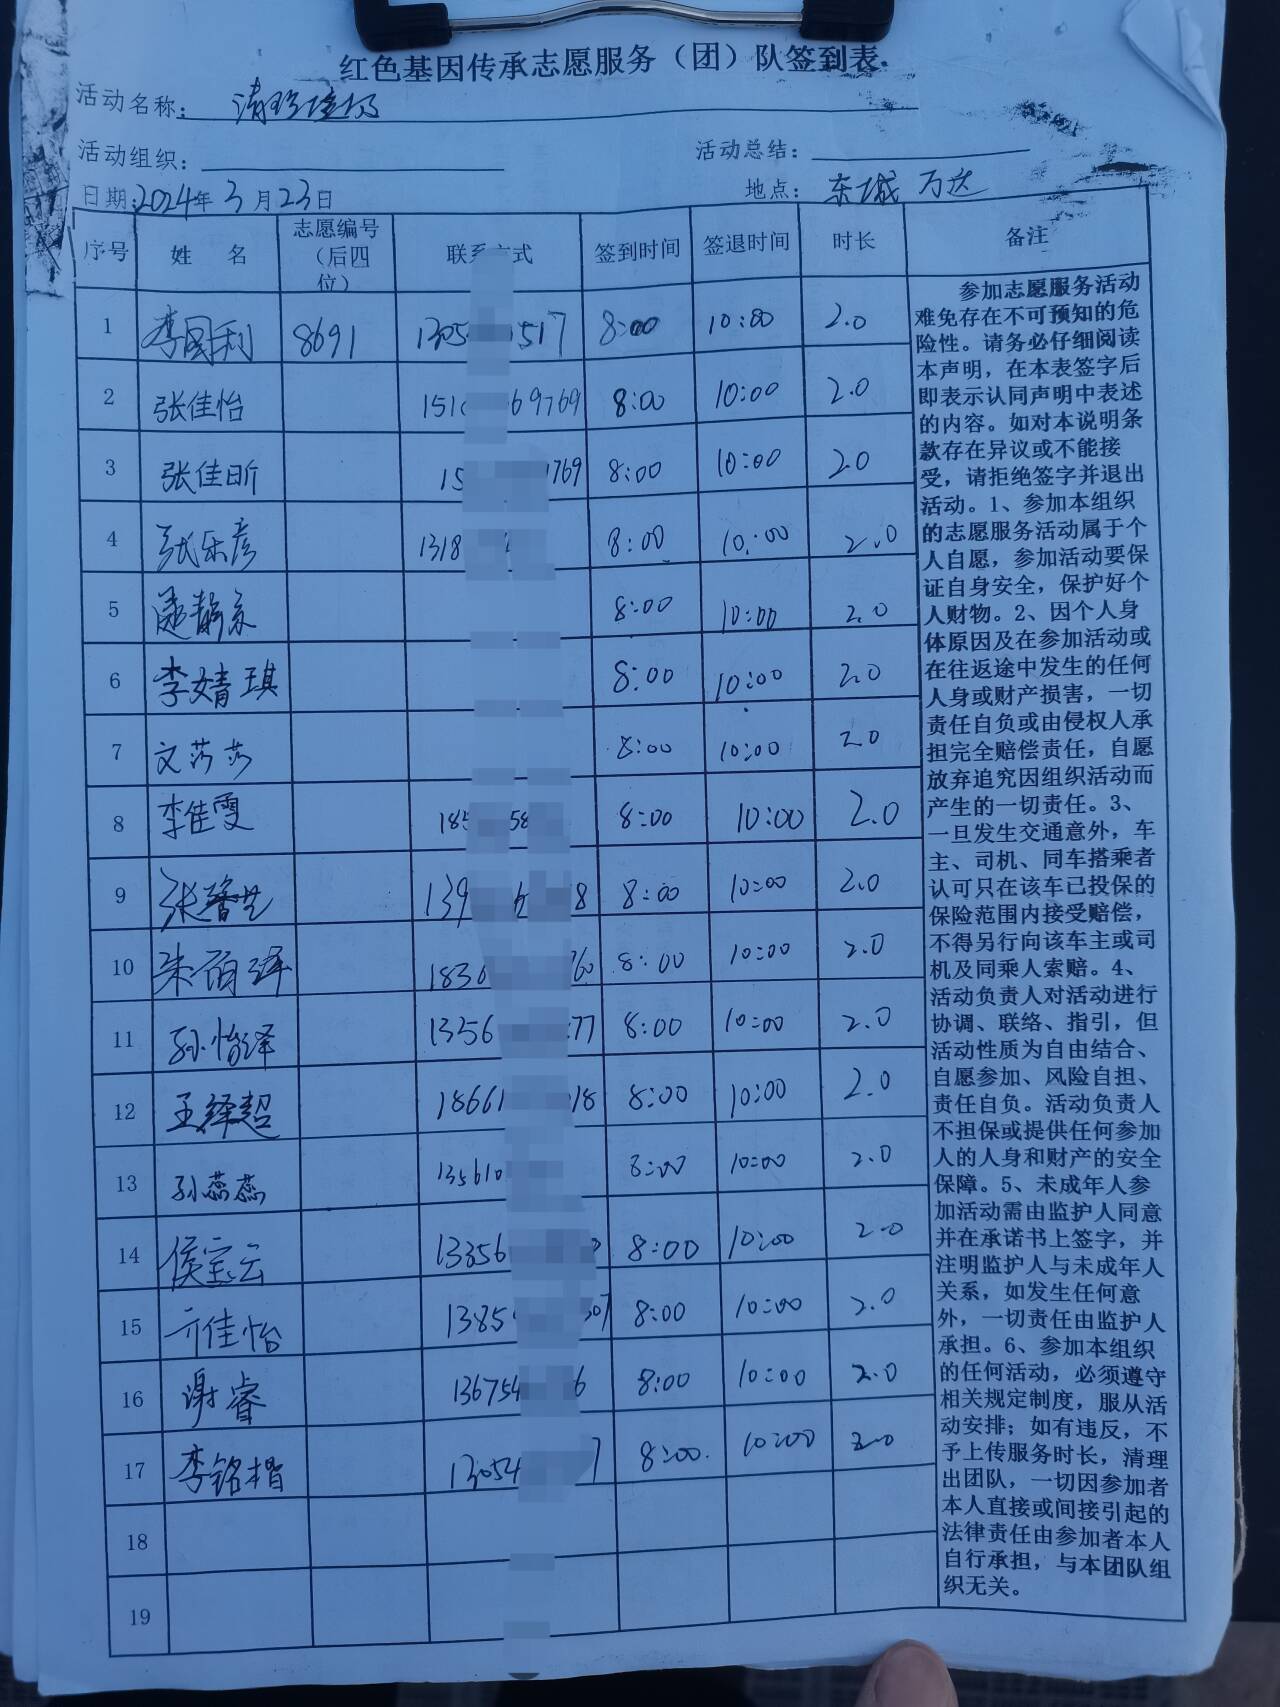 红色基因传承志愿服务（团）队签到表.
活动名称：
活动组织：
活动总结：
日期:2024年3月23日
地点：东城万达
序号 姓 名 志愿编号（后四位） 联系方式 签到时间 签退时间 时长 备注
1 李国利 8691 8:00 10:00 2.0
2 张佳怡 8:00 10:00 2.0
3 张佳昕 8:00 10:00 2.0
4 张乐彦 1318 8:00 10:00 2.0
5 8:00 10:00 2.0
6 李婧琪 8:00 10:00 2.0
7 文莎莎 8:00 10:00 2.0
8 李佳雯 8:00 10:00 2.0
9 139 8 8:00 10:00 2.0
10 1836 60 8:00 10:00 2.0
11 孙怡泽 1356 77 8:00 10:00 2.0
12 王绎超 18661 018 8:00 10:00 2.0
13 孙蕊蕊 135610 8:00 10:00 2.0
14 侯宝云 13356 8:00 10:00 2.0
15 亓佳怡 1385 307 8:00 10:00 2.0
16 谢睿 136754 6 8:00 10:00 2.0
17 李铭楷 13054 7 8:00. 10:00 2.0
18
19
参加志愿服务活动
难免存在不可预知的危
险性。请务必仔细阅读
本声明，在本表签字后
即表示认同声明中表述
的内容。如对本说明条
款存在异议或不能接
受，请拒绝签字并退出
活动。1、参加本组织
的志愿服务活动属于个
人自愿，参加活动要保
证自身安全，保护好个
人财物。2、因个人身
体原因及在参加活动或
在往返途中发生的任何
人身或财产损害，一切
责任自负或由侵权人承
担完全赔偿责任，自愿
放弃追究因组织活动而
产生的一切责任。3、
一旦发生交通意外，车
主、司机、同车搭乘者
认可只在该车已投保的
保险范围内接受赔偿，
不得另行向该车主或司
机及同乘人索赔。4、
活动负责人对活动进行
协调、联络、指引，但
活动性质为自由结合、
自愿参加、风险自担、
责任自负。活动负责人
不担保或提供任何参加
人的人身和财产的安全
保障。5、未成年人参
加活动需由监护人同意
并在承诺书上签字，并
注明监护人与未成年人
关系，如发生任何意
外，一切责任由监护人
承担。6、参加本组织
的任何活动，必须遵守
相关规定制度，服从活
动安排；如有违反，不
予上传服务时长，清理
出团队，一切因参加者
本人直接或间接引起的
法律责任由参加者本人
自行承担，与本团队组
织无关。